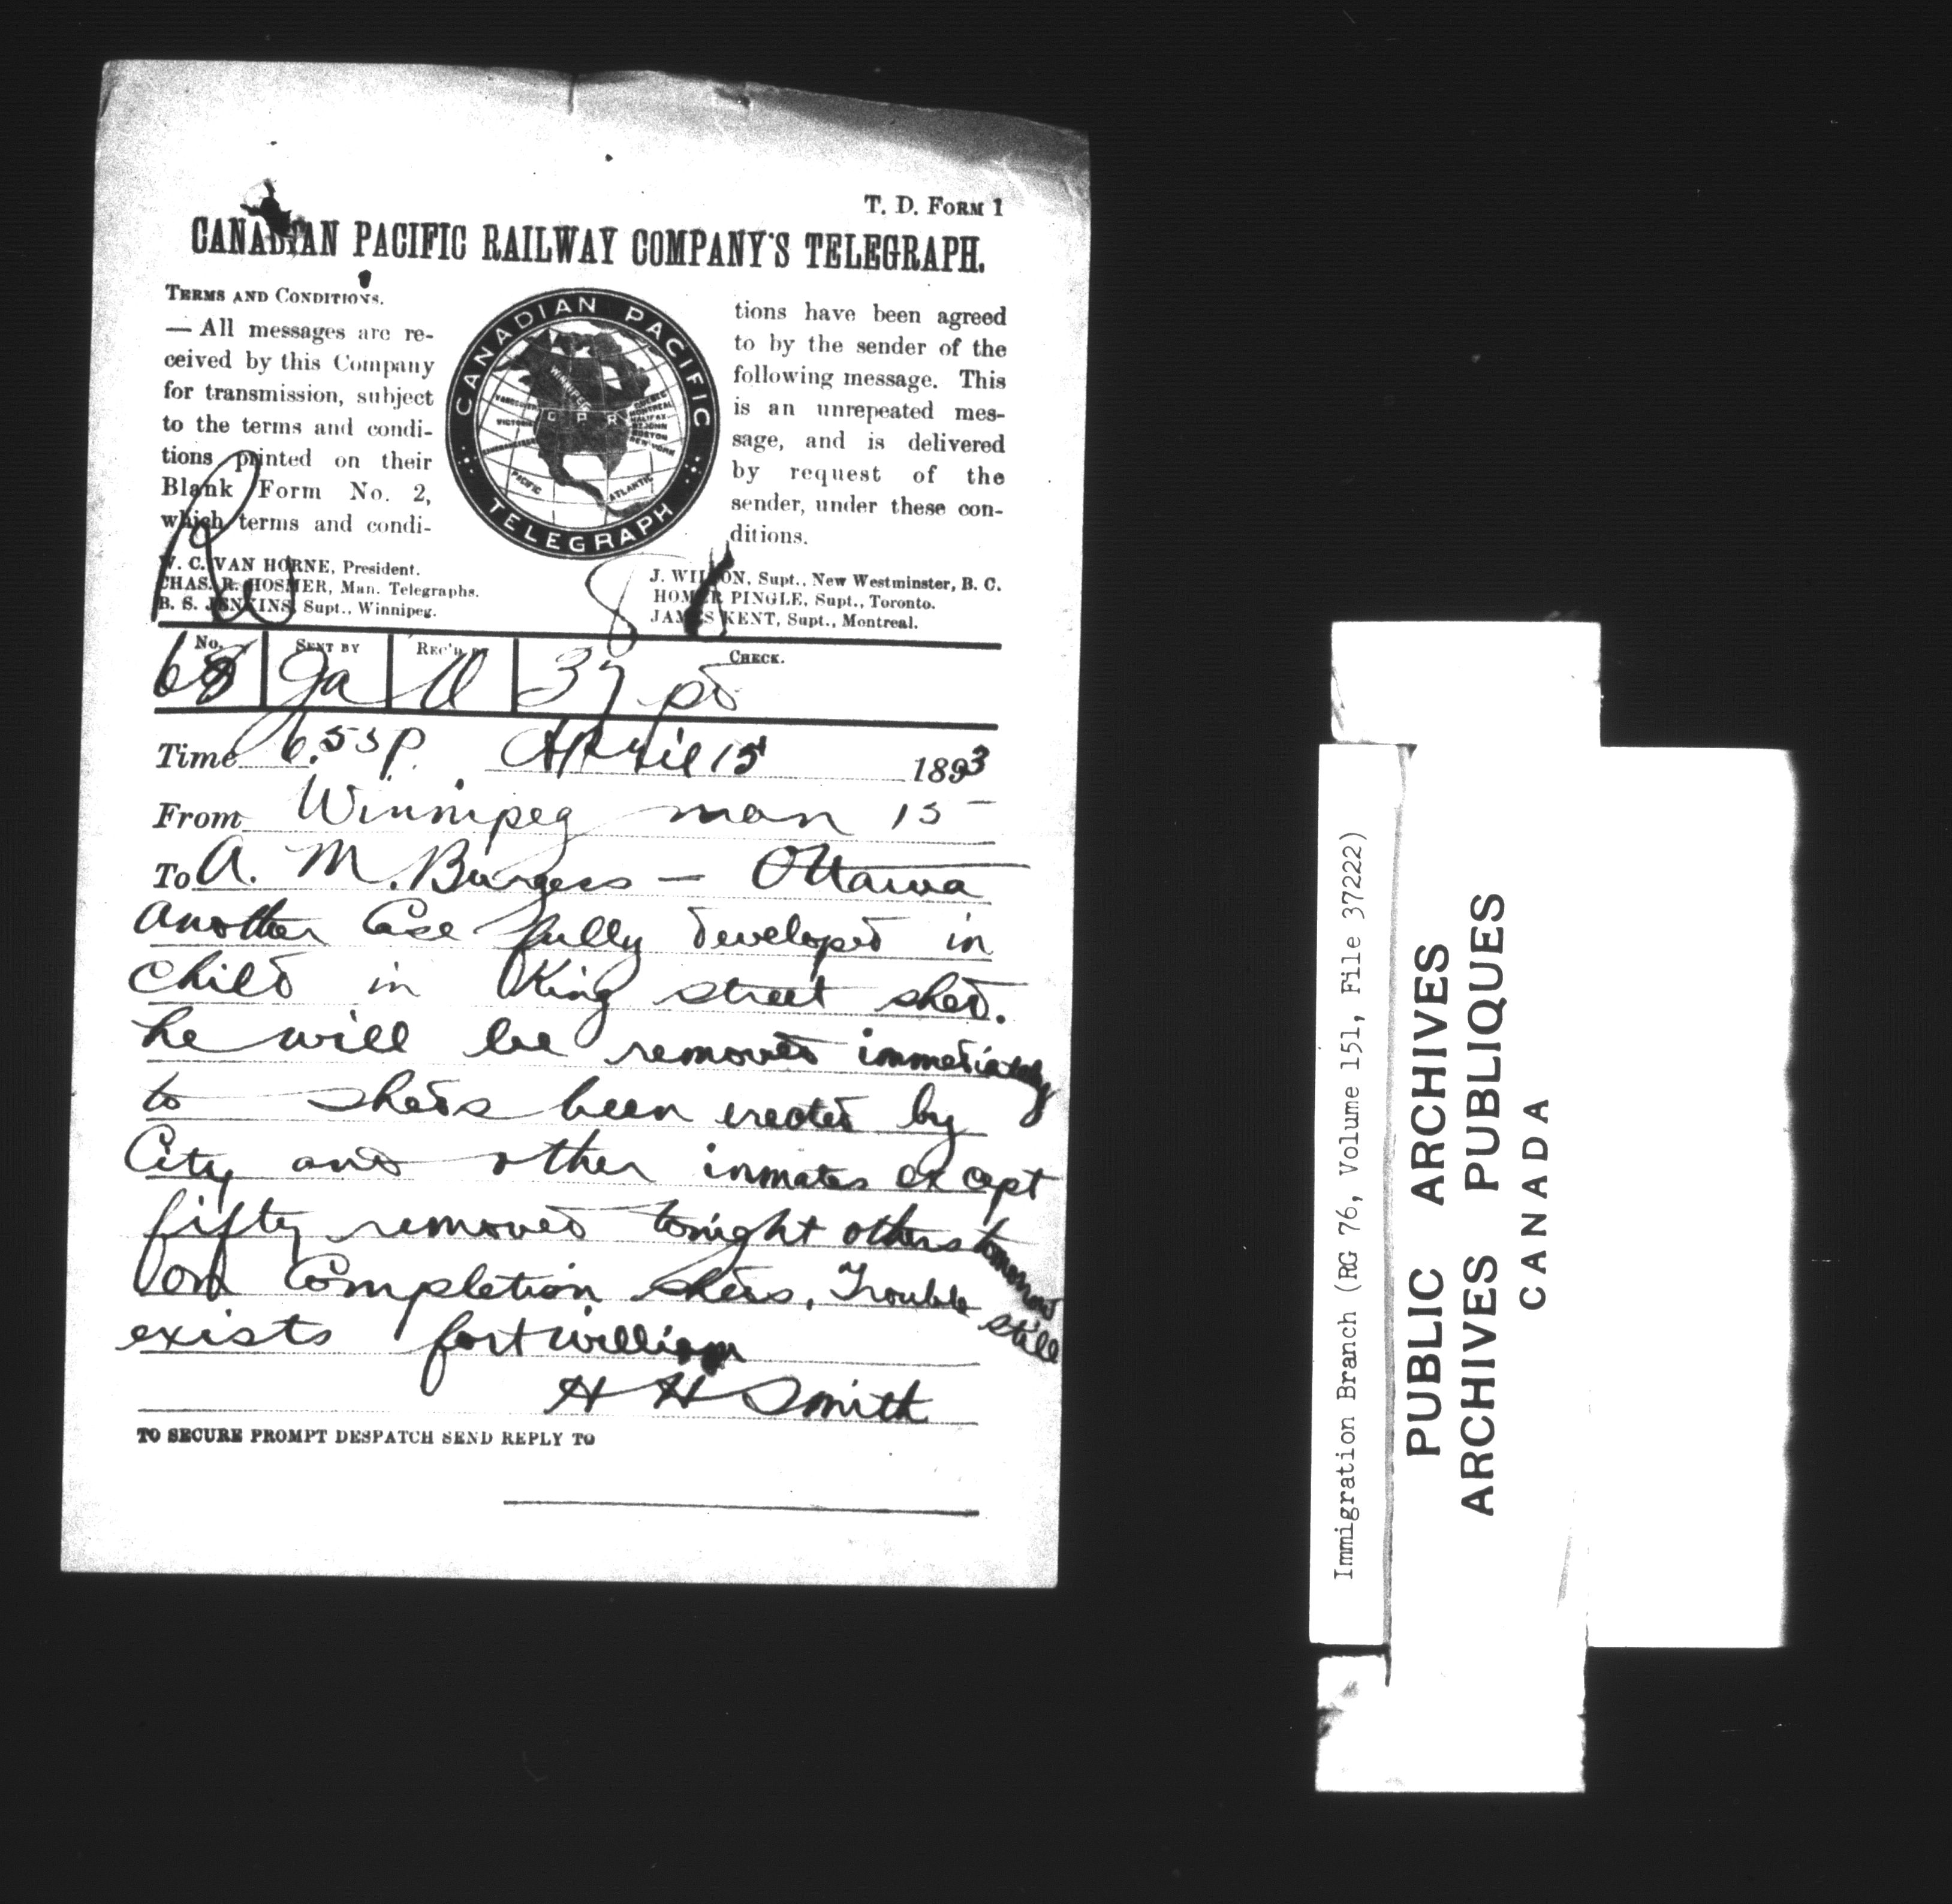 T. D. FORM 1
CANADIAN PACIFIC RAILWAY COMPANY'S TELEGRAPH.
TERMS AND CONDITIONS.
— All messages are re-
ceived by this Company
for transmission, subject
to the terms and condi-
tions printed on their
Blank Form No. 2,
which terms and condi-
CANADIAN PACIFIC
TELEGRAPH
WINNIPEG
VANCOUVER
VICTORIA
C P R
QUEBEC
MONTREAL
HALIFAX
ST JOHN
BOSTON
NEW YORK
PACIFIC
ATLANTIC
tions have been agreed
to by the sender of the
following message. This
is an unrepeated mes-
sage, and is delivered
by request of the
sender, under these con-
ditions.
W. C. VAN HORNE, President.
CHAS. R. HOSMER, Man. Telegraphs.
B. S. JENKINS, Supt., Winnipeg.
J. WILSON, Supt., New Westminster, B. C.
HOMER PINGLE, Supt., Toronto.
JAMES KENT, Supt., Montreal.
No. SENT BY REC'D CHECK.
68 Ja 37
Time 6.53 P. April 15 1893
From Winnipeg man 15
To A. M. Burgess — Ottawa
Another Case fully developed in
child in King street shed.
he will be removed immediately
to sheds been erected by
City and other inmates except
fifty removed tonight others tomorrow
on Completion sheds. Trouble still
exists fort william
H H Smith
TO SECURE PROMPT DESPATCH SEND REPLY TO
Immigration Branch (RG 76, Volume 151, File 37222)
PUBLIC ARCHIVES
ARCHIVES PUBLIQUES
CANADA